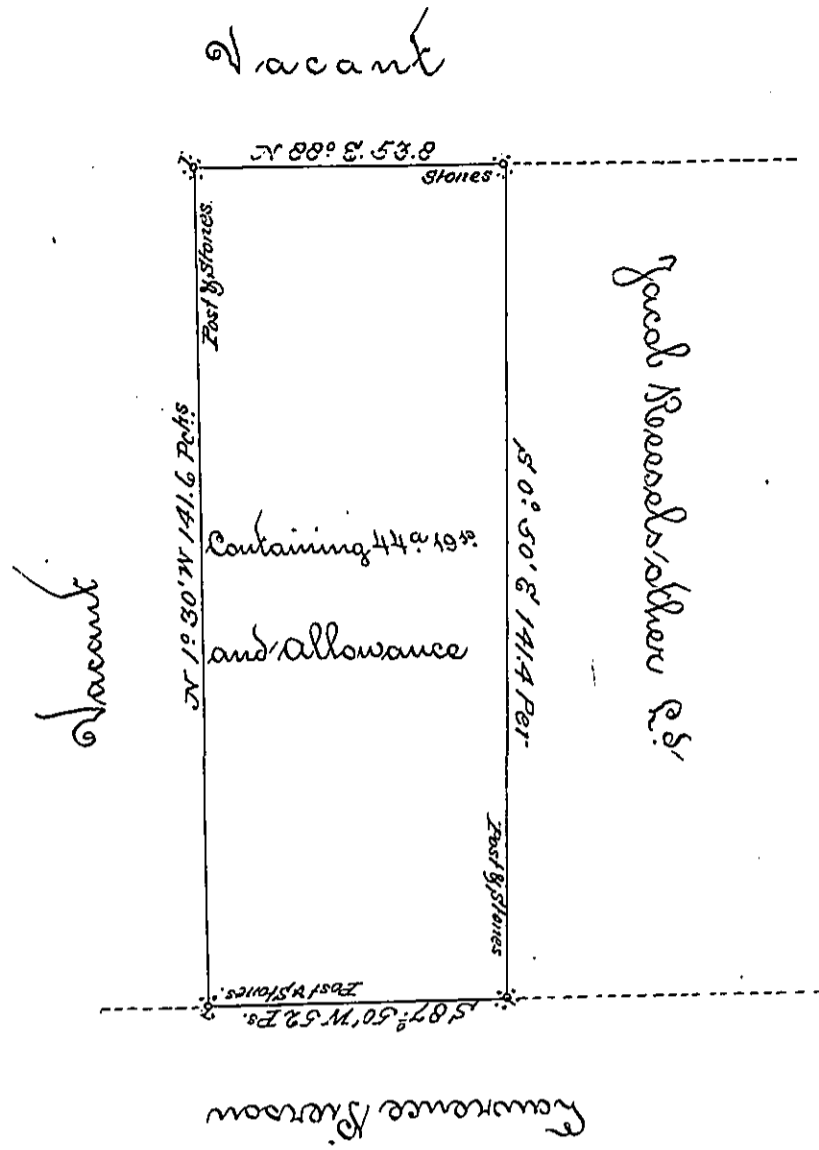 Vacant
N 88° E. 53.8
Stones
Post & Stones.
N 1° 30' W 141.6 Pchs
Vacant
Containing 44a 19ps
and Allowance
S 0° 50' E 141.4 Per
Post & Stones
Jacob Reasels other L.S.
Post & Stones.
S 87° 50' W 52 Ps.
Lawrence Pierson